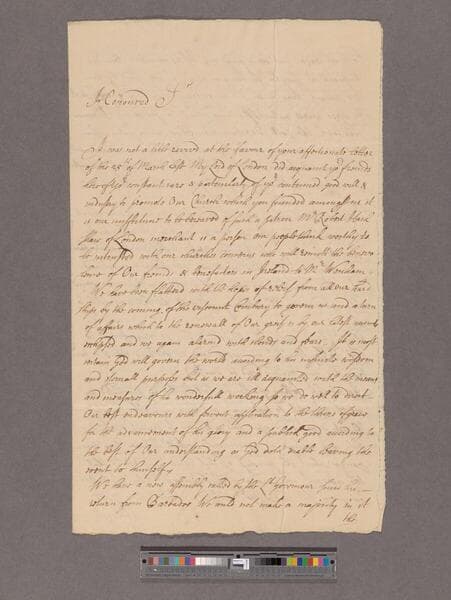 Honoured Sr
I was not a little revived at the favour of your affectionate letter
of the 25th of March last My Lord of London did acquaint yo friends
here of yor constant care & particularly of yor continued good will &
industry to promote Our Church which you founded amongst us it
is our misfortune to be bereaved of such a patron Mr Robert Hack
shaw of London merchant is a person our people think worthy to
be intrusted with our churches concerns who will remitt the benevo
lence of Our friends & benefactors in Ireland to Mr Wenham
We have been flattered with the hopes of relief from all our hard
ships by the coming of the viscount Cornbury to govern us and a turn
of affairs which to the renewall of Our grief is by our latest
eclipsed and we again alarmed with clouds and fears. It is most
certain God will govern the world according to his infinite wisdom
and eternall purposes but as we are ill acquainted with the means
and measures of his wonderfull working so we do well to direct
Our best endeavours with fervent application to the throne of grace
for the advancement of his glory and a publick good according to
the best of Our understanding as God doth enable leaving the
event to himself
We have a new assembly called by the Lt Governour since his
return from Barbados We could not make a majority in it